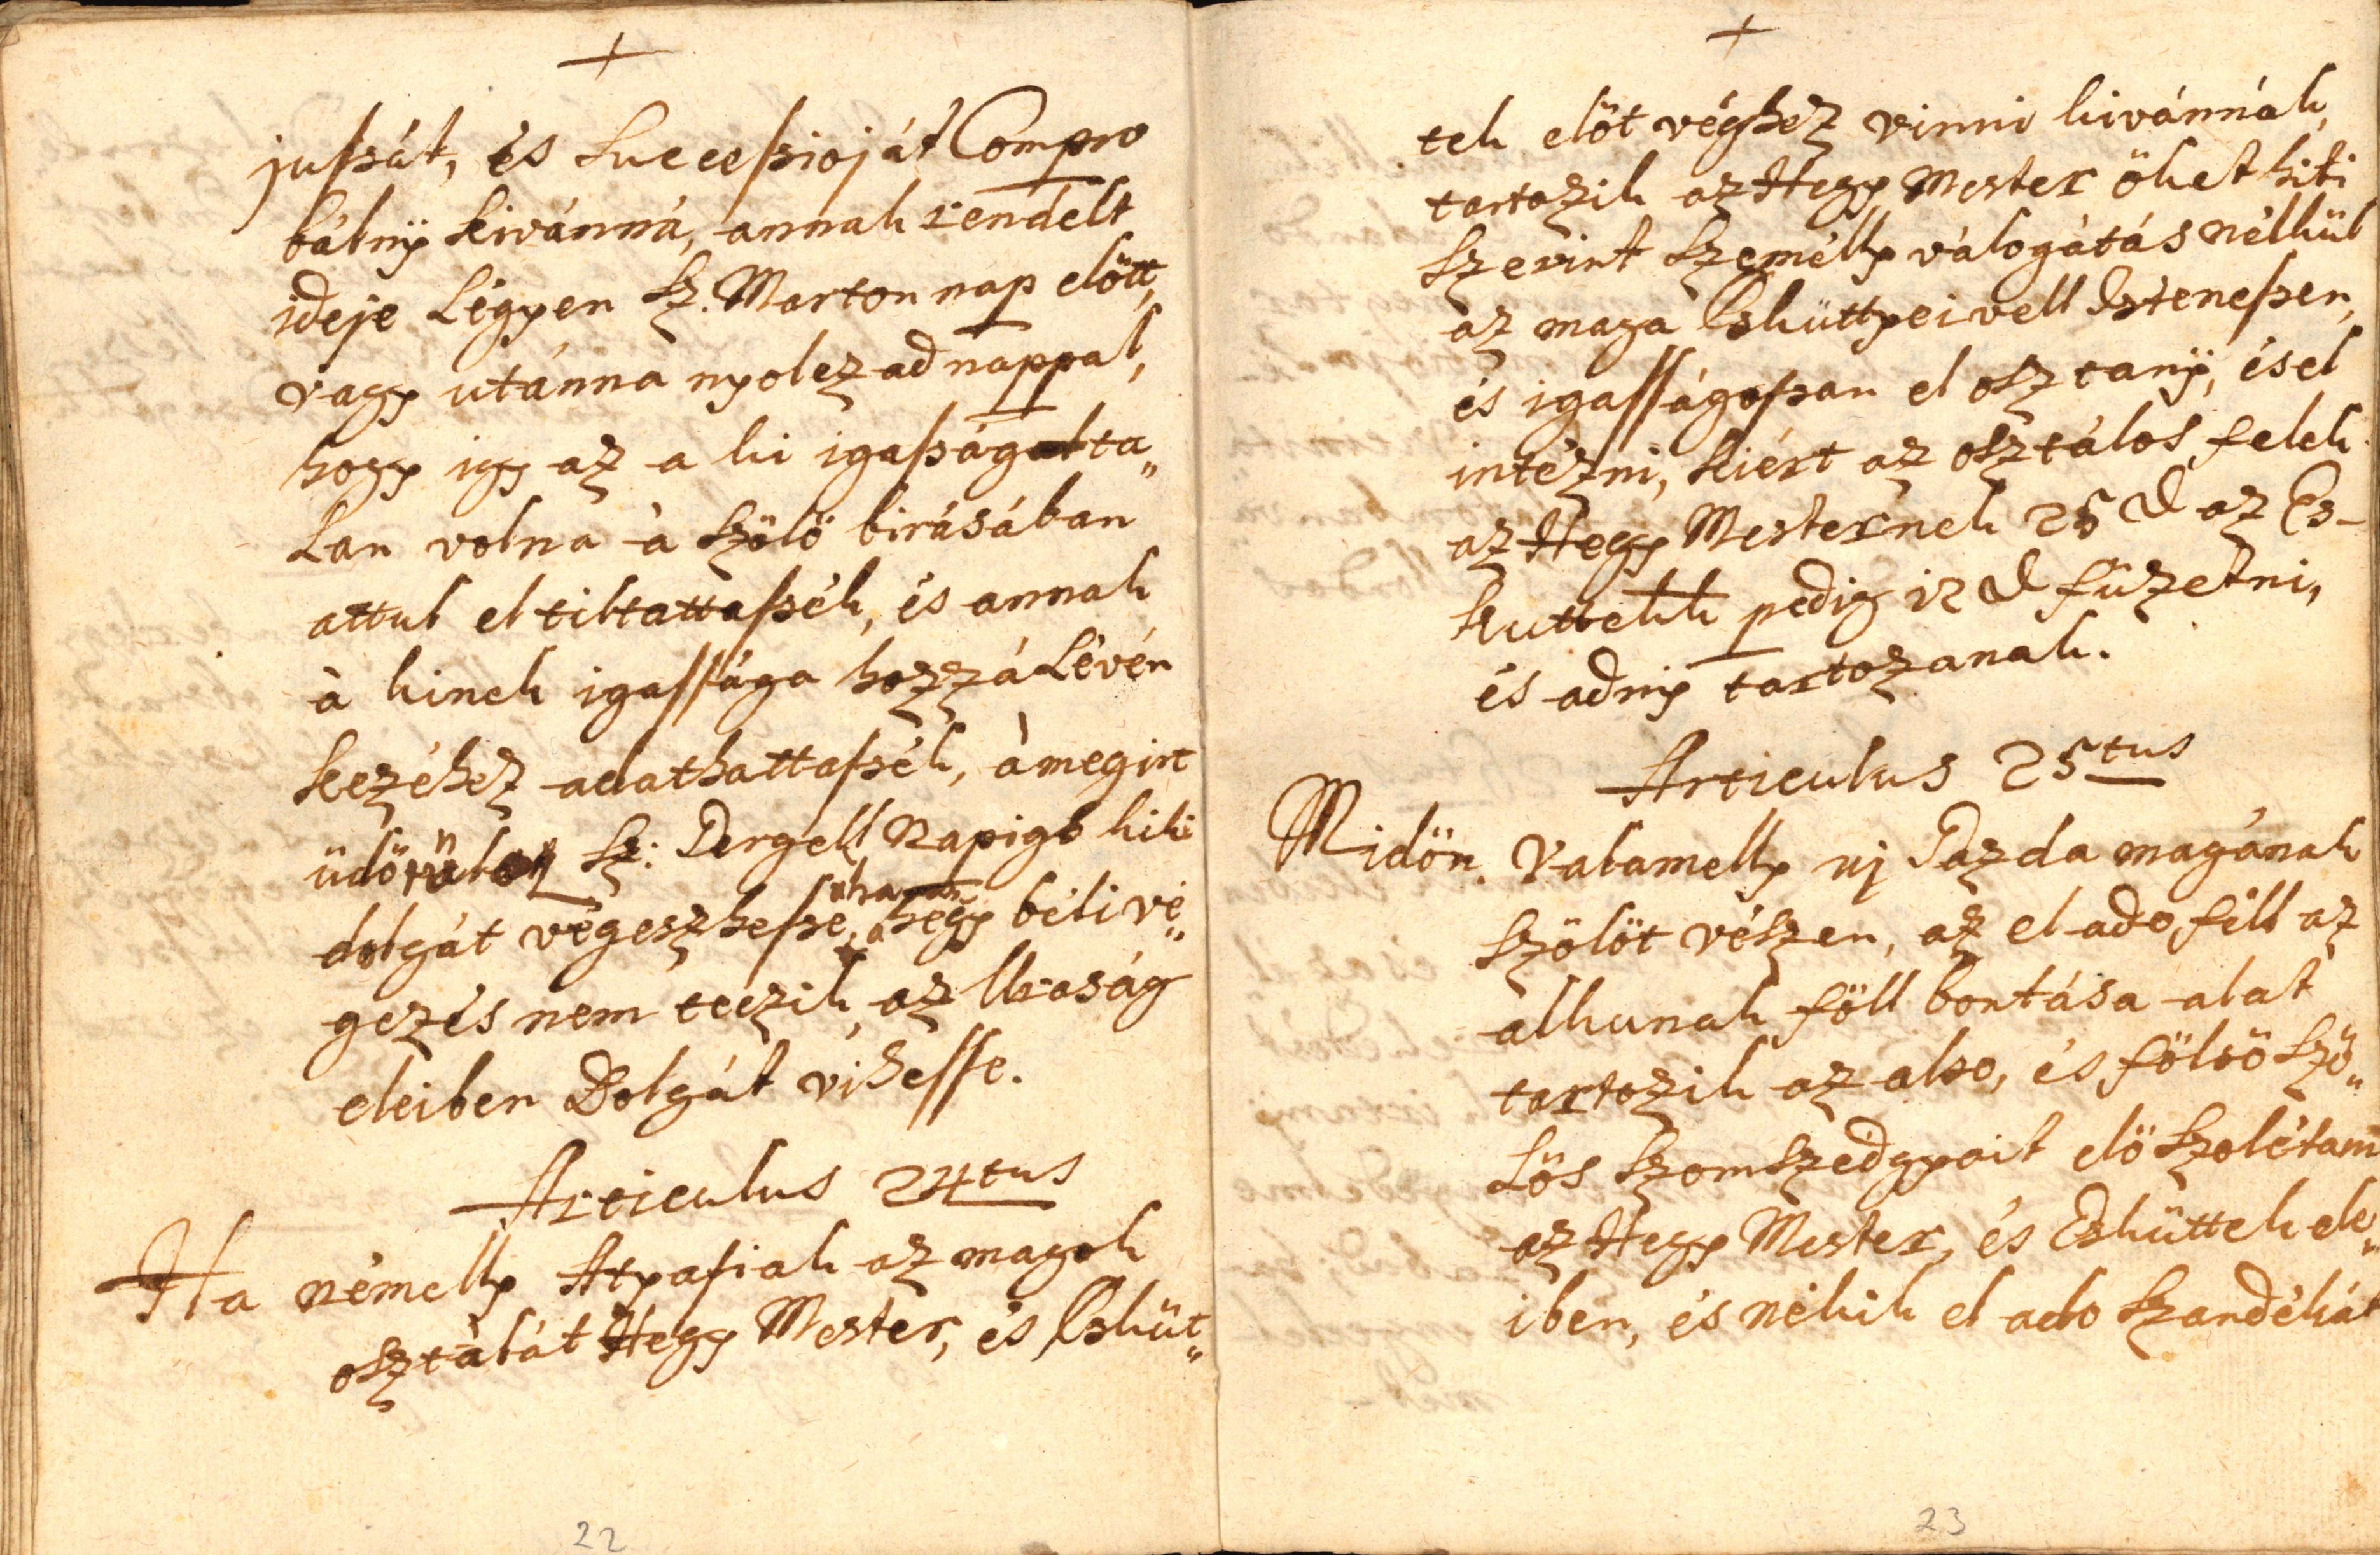 +
jussát, és Successioját Compro
bálnÿ kivánná, annak rendelt
ideje Légyen Sz. Marton nap elött,
vagy utánna nyolczad nappal,
hogy igy az a ki igasságatta„
Lan volna à szölö birásában
attul eltiltattassék, és annak
à kinek igassága hozzá Lévén
kezéhez adathattassék, à megirt
üdötül Sz: Gergell Napigh kiki
dolgát végeszhesse, ha a hegy béli vé„
gezés nem teczik, az Uraság
eleiben Dolgát vihesse.
Articulus 24tus
Ha némelly Atyafiak az magok
osztàlát Hegy Mester, és Esküt„
22
+
tek elöt véghez vinni kivánnák,
tartozik az Hegy Mester öket hiti
szerint személly válogátás nélkül
az maga Esküttyeivell Istenessen,
és igasságossan el osztanÿ, és el
intézni, kiért az osztálos felek
az Hegy Mesternek 25 d az Es-
kuttekk pedig 12 d füzetni,
és adnÿ tartozanak.
Articulus 25tus
Midön Valamelly uj Gazda magának
szölöt vészen, az el ado fèll az
alkunak föll bontása alat
tartozik az also, és fölsö szö„
Lös szomszedgyait elö szolétani
az Hegy Mester, és Esküttek ele„
iben, és nékik el ado szandékát
23